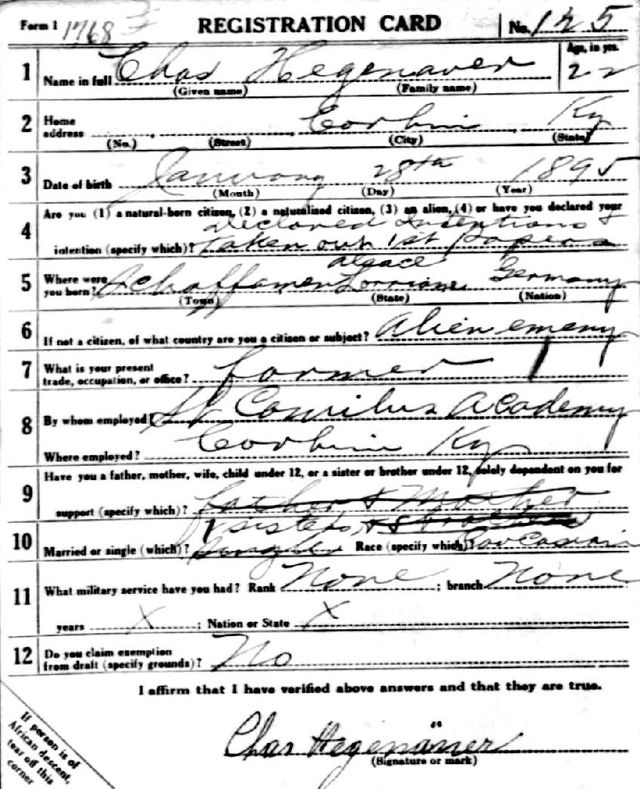 Form 1 1768 REGISTRATION CARD No. 125
1 Name in full Chas Hegenauer Age, in yrs. 22
(Given name) (Family name)
2 Home address Corbin Ky
(No.) (Street) (City) (State)
3 Date of birth January 28th 1895
(Month) (Day) (Year)
4 Are you (1) a natural-born citizen, (2) a naturalized citizen, (3) an alien, (4) or have you declared your
declared Intentions &
intention (specify which)? taken out 1st papers
Alsace
5 Where were you born? Lorriane Germany
(Town) (State) (Nation)
6 If not a citizen, of what country are you a citizen or subject? Alien emeny
7 What is your present trade, occupation, or office? farmer
8 By whom employed? St Camilus Academy
Where employed? Corbin Ky
9 Have you a father, mother, wife, child under 12, or a sister or brother under 12, solely dependent on you for
support (specify which)? father & Mother
1 sister &
10 Married or single (which)? Single Race (specify which)? Caucasian
11 What military service have you had? Rank None ; branch None
years X ; Nation or State X
12 Do you claim exemption from draft (specify grounds)? No
I affirm that I have verified above answers and that they are true.
Chas Hegenäuer
(Signature or mark)
If person is of
African descent,
tear off this
corner